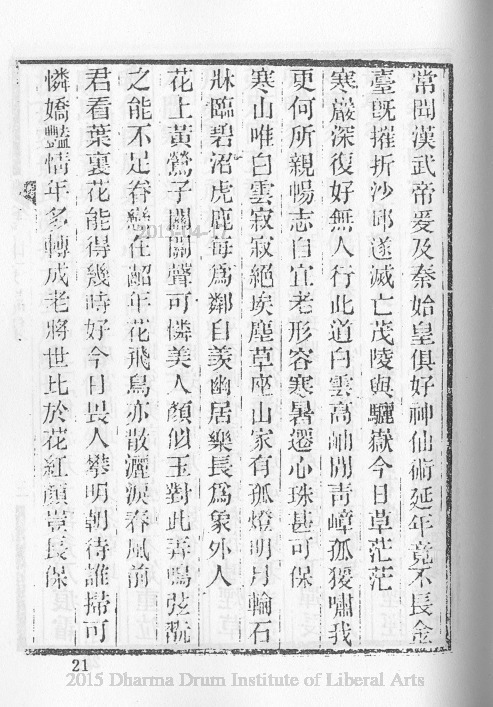 常聞漢武帝爰及秦始皇俱好神仙術延年竟不長金
臺既摧折沙邱遂滅亡茂陵與驪嶽今日草茫茫
寒巖深復好無人行此道白雲高岫閒青嶂孤猨嘯我
更何所親暢志自宜老形容寒暑遷心珠甚可保
寒山唯白雲寂寂絕埃塵草座山家有孤燈明月輪石
牀臨碧沼虎鹿每為鄰自羨幽居樂長為象外人
花上黃鶯子關關聲可憐美人顏似玉對此弄鳴弦翫
之能不足眷戀在齠年花飛鳥亦散灑淚春風前
君看葉裏花能得幾時好今日畏人攀明朝待誰掃可
憐嬌豔情年多轉成老將世比於花紅顏豈長保
2015-04-17
21
2015 Dharma Drum Institute of Liberal Arts